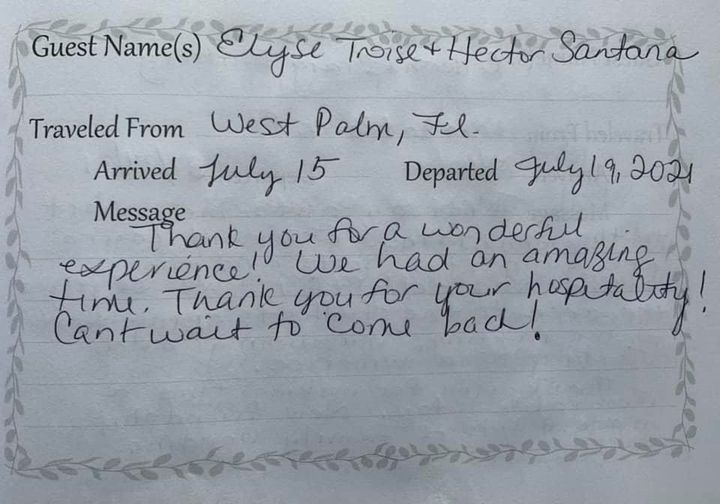 Guest Name(s) Elyse Troise + Hector Santana
Traveled From West Palm, Fl.
Arrived July 15 Departed July 19, 2021
Message
Thank you for a wonderful
experience! We had an amazing
time. Thank you for your hospitality!
Cant wait to come back!